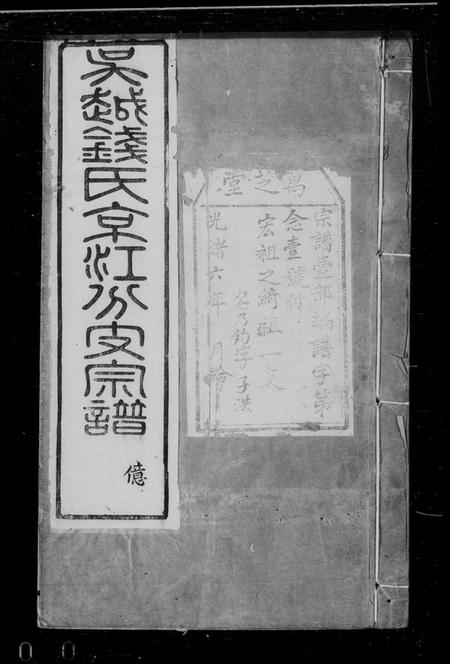 吳越錢氏京江分支宗譜
億
萬芝堂
宗譜壹部編譜字第
念壹號付
宏祖之綺祖一支
名乃鈞字子洪
光緒六年 月給
0 0